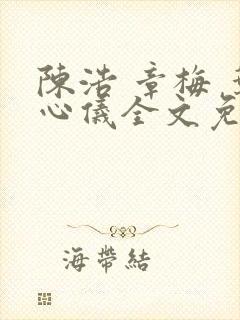 陳浩 章梅
心儀全文免
海帶結